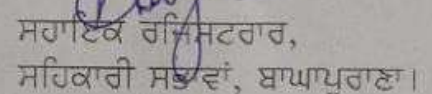 ਸਹਾਇਕ ਰਜਿਸਟਰਾਰ,
ਸਹਿਕਾਰੀ ਸਭਾਵਾਂ, ਬਾਘਾਪੁਰਾਣਾ।